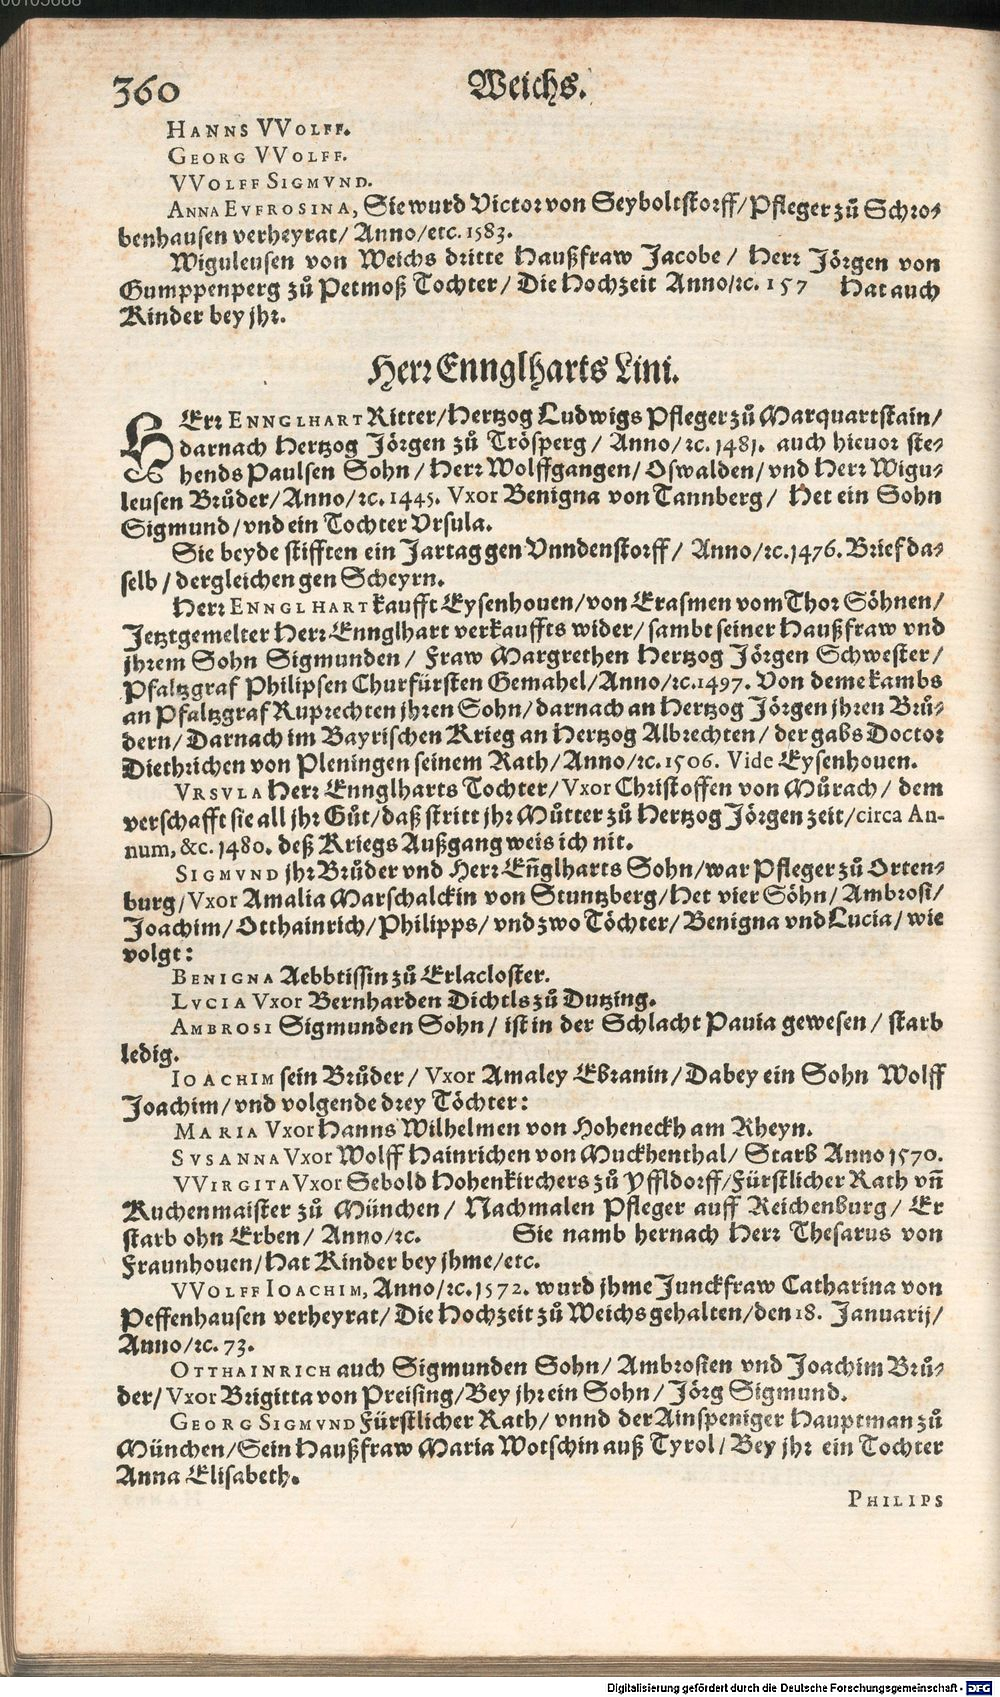 360 Weichs.
HANNS VVOLFF.
GEORG VVOLFF.
VVOLFF SIGMVND.
ANNA EVFROSINA, Sie wurd Victor von Seyboltstorff/Pfleger zů Schro-
benhausen verheyrat/ Anno/etc. 1583.
Wiguleusen von Weichs dritte Haußfraw Jacobe/ Herr Jörgen von
Gumppenperg zů Petmoß Tochter/ Die Hochzeit Anno/ꝛc. 157 Hat auch
Kinder bey jhr.
Herr Ennglharts Lini.
HErr ENNGLHART Ritter/Hertzog Ludwigs Pfleger zů Marquartstain/
darnach Hertzog Jörgen zů Trösperg/ Anno/ꝛc. 1481. auch hieuor ste-
hends Paulsen Sohn/ Herr Wolffgangen/ Oswalden/ vnd Herr Wigu-
leusen Brůder/Anno/ꝛc. 1445. Vxor Benigna von Tannberg/ Het ein Sohn
Sigmund/vnd ein Tochter Vrsula.
Sie beyde stifften ein Jartag gen Vnndenstorff/ Anno/ꝛc. 1476. Brief da-
selb/dergleichen gen Scheyrn.
Herr ENNGLHART kaufft Eysenhouen/von Erasmen vom Thor Söhnen/
Jetztgemelter Herr Ennglhart verkauffts wider/ sambt seiner Haußfraw vnd
jhrem Sohn Sigmunden/ Fraw Margrethen Hertzog Jörgen Schwester/
Pfaltzgraf Philipsen Churfürsten Gemahel/Anno/ꝛc. 1497. Von deme kambs
an Pfaltzgraf Ruprechten jhren Sohn/darnach an Hertzog Jörgen jhren Brů-
dern/Darnach im Bayrischen Krieg an Hertzog Albrechten/ der gabs Doctor
Diethrichen von Pleningen seinem Rath/Anno/ꝛc. 1506. Vide Eysenhouen.
VRSVLA Herr Ennglharts Tochter/Vxor Christoffen von Můrach/ dem
verschafft sie all jhr Gůt/daß stritt jhr Můtter zů Hertzog Jörgen zeit/circa An-
num, &c. 1480. deß Kriegs Außgang weis ich nit.
SIGMVND jhr Brůder vnd Herr Eñglharts Sohn/war Pfleger zů Orten-
burg/Vxor Amalia Marschalckin von Stuntzberg/Het vier Söhn/Ambrosi/
Joachim/Otthainrich/Philipps/vnd zwo Töchter/Benigna vnd Lucia/wie
volgt:
BENIGNA Aebbtissin zů Erlacloster.
LVCIA Vxor Bernharden Dichtls zů Dutzing.
AMBROSI Sigmunden Sohn/ ist in der Schlacht Pauia gewesen/ starb
ledig.
IOACHIM sein Brůder/ Vxor Amaley Ebranin/Dabey ein Sohn Wolff
Joachim/vnd volgende drey Töchter:
MARIA Vxor Hanns Wilhelmen von Hoheneckh am Rheyn.
SVSANNA Vxor Wolff Hainrichen von Muckhenthal/ Starb Anno 1570.
VVIRGITA Vxor Sebold Hohenkirchers zů Yffldorff/Fürstlicher Rath vñ
Kuchenmaister zů München/ Nachmalen Pfleger auff Reichenburg/ Er
starb ohn Erben/ Anno/ꝛc. Sie namb hernach Herr Thesarus von
Fraunhouen/Hat Kinder bey jhme/etc.
VVOLFF IOACHIM, Anno/ꝛc. 1572. wurd jhme Junckfraw Catharina von
Peffenhausen verheyrat/Die Hochzeit zů Weichs gehalten/den 18. Januarij/
Anno/ꝛc. 73.
OTTHAINRICH auch Sigmunden Sohn/ Ambrosien vnd Joachim Brů-
der/Vxor Brigitta von Preising/Bey jhr ein Sohn/Jörg Sigmund.
GEORG SIGMVND Fürstlicher Rath/vnnd der Ainspeniger Hauptman zů
München/Sein Haußfraw Maria Wotschin auß Tyrol/Bey jhr ein Tochter
Anna Elisabeth.
PHILIPS
Digitalisierung gefördert durch die Deutsche Forschungsgemeinschaft - DFG